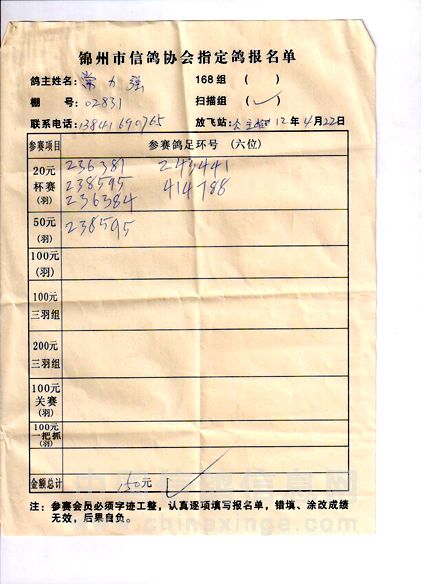 锦州市信鸽协会指定鸽报名单
鸽主姓名: 常力强 168组 ( )
棚 号: 02831 扫描组 (✓)
联系电话: 13841690765 放飞站: 12年4月22日
参赛项目 参赛鸽足环号 (六位)
20元 236381 243441
杯赛 238595 414788
(羽) 236384
50元 238595
(羽)
100元
(羽)
100元
三羽组
200元
三羽组
100元
关赛
(羽)
100元
一把抓
金额总计 150元 ✓
注: 参赛会员必须字迹工整, 认真逐项填写报名单, 错填、涂改成绩
无效, 后果自负。
www.chinaxinge.com